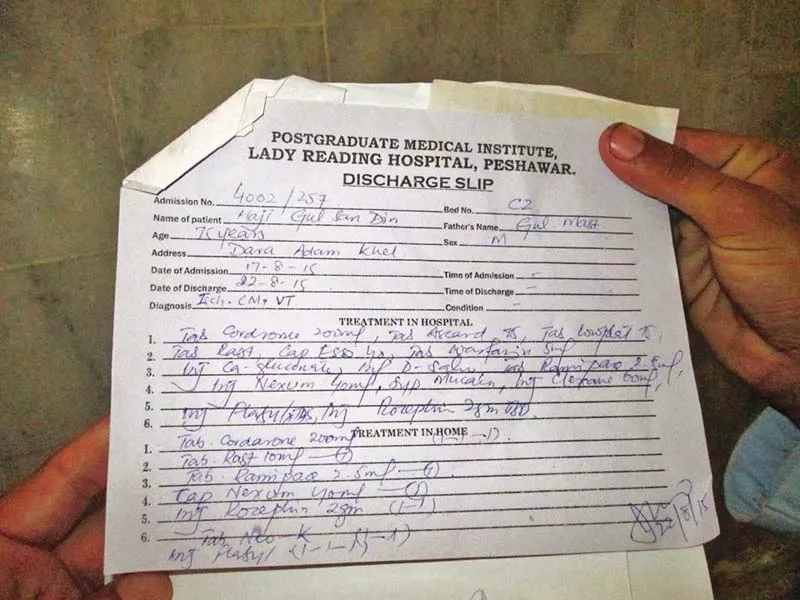 POSTGRADUATE MEDICAL INSTITUTE,
LADY READING HOSPITAL, PESHAWAR.
DISCHARGE SLIP
Admission No. 4002/257 Bed No. C2
Name of patient Haji Gul Din Father's Name Gul Mast
Age 75 years Sex M
Address Dara Adam Khel
Date of Admission 17-8-15 Time of Admission -
Date of Discharge 22-8-15 Time of Discharge -
Diagnosis Isch. CM, VT Condition -
TREATMENT IN HOSPITAL
1. Tab Cordrone 200mg, Tab Ascard 75, Tab Lowplat 75,
2. Tab Rast, Cap Esso 40, Tab Warfarin 5mg
3. Inj Ca-gluconate, Inf D-Salin, Tab Ramipace 2.5mg,
4. Inj Nexum 40mg, Syp Mucain, Inj Clexane 60mg,
5.
6. Inj Flagyl, Inj Rocephin 2gm
TREATMENT IN HOME
1. Tab. Cordarone 200mg (1-1-1).
2. Tab. Rast 10mg
3. Tab. Ramipace 2.5mg
4. Cap Nexum 40mg
5. Inj Rocephin 2gm (1-1)
6. Tab Neo K
Inj Flagyl (1-1-1)
22/8/15